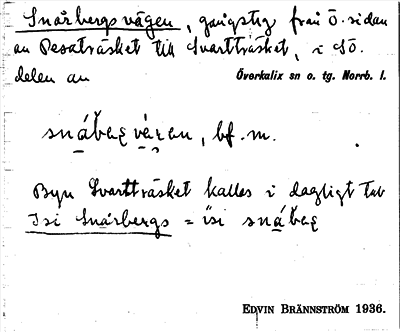 Snårbergsvägen, gångstig från Ö. sidan
av Pesaträsket till Svartträsket, i SÖ.
delen av Överkalix sn o. tg. Norrb. l.
snábæg vàẓan, bf. m.
Byn Svartträsket kallas i dagligt tal
Isi Snårbergs = ísi snábæg
EDVIN BRÄNNSTRÖM 1936.